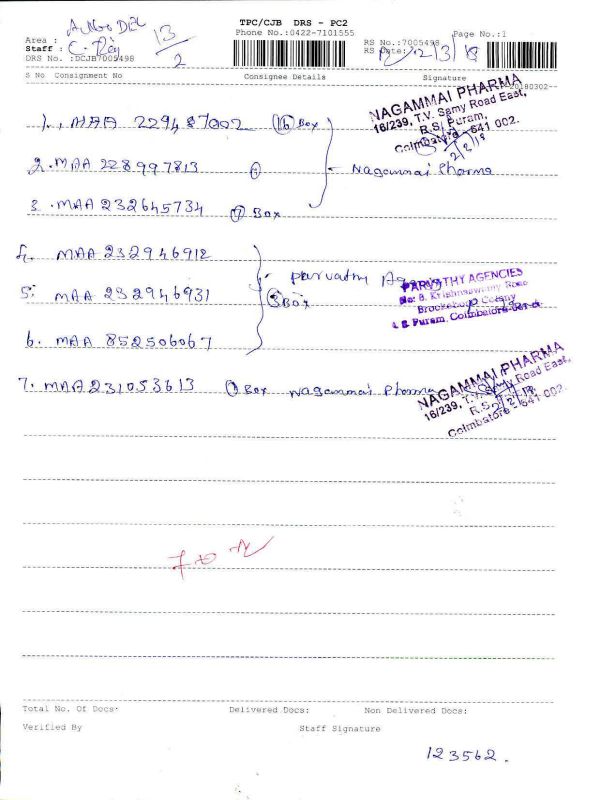 TPC/CJB DRS - PC2
Phone No.:0422-7101555
Page No.:1
Auto DEL
Area :
13/2
Staff :
DRS No. :DCJB7005498
RS No.:7005498
RS Date:
2/3/18
20180302-
S No Consignment No Consignee Details Signature
NAGAMMAI PHARMA
16/239, T.V. Samy Road East,
R.S. Puram,
Coimbatore - 641 002.
1., MAA 229487002 (16) Box
2. MAA 228997813
Nagammai Pharma
3. MAA 232645734 Box
4. MAA 232946912
Parvathy Agency
5. MAA 232946931 (3) Box
PARVATHY AGENCIES
No: 8, Krishnaswamy Road
Brockebond Colony
R.S. Puram, Coimbatore-641
6. MAA 852506067
7. MAA 231053613 (1) Box Nagammai Pharma
NAGAMMAI PHARMA
16/239, T.V. Samy Road East,
R.S.
Coimbatore - 641 002.
Total No. Of Docs: Delivered Docs: Non Delivered Docs:
Verified By Staff Signature
123562.